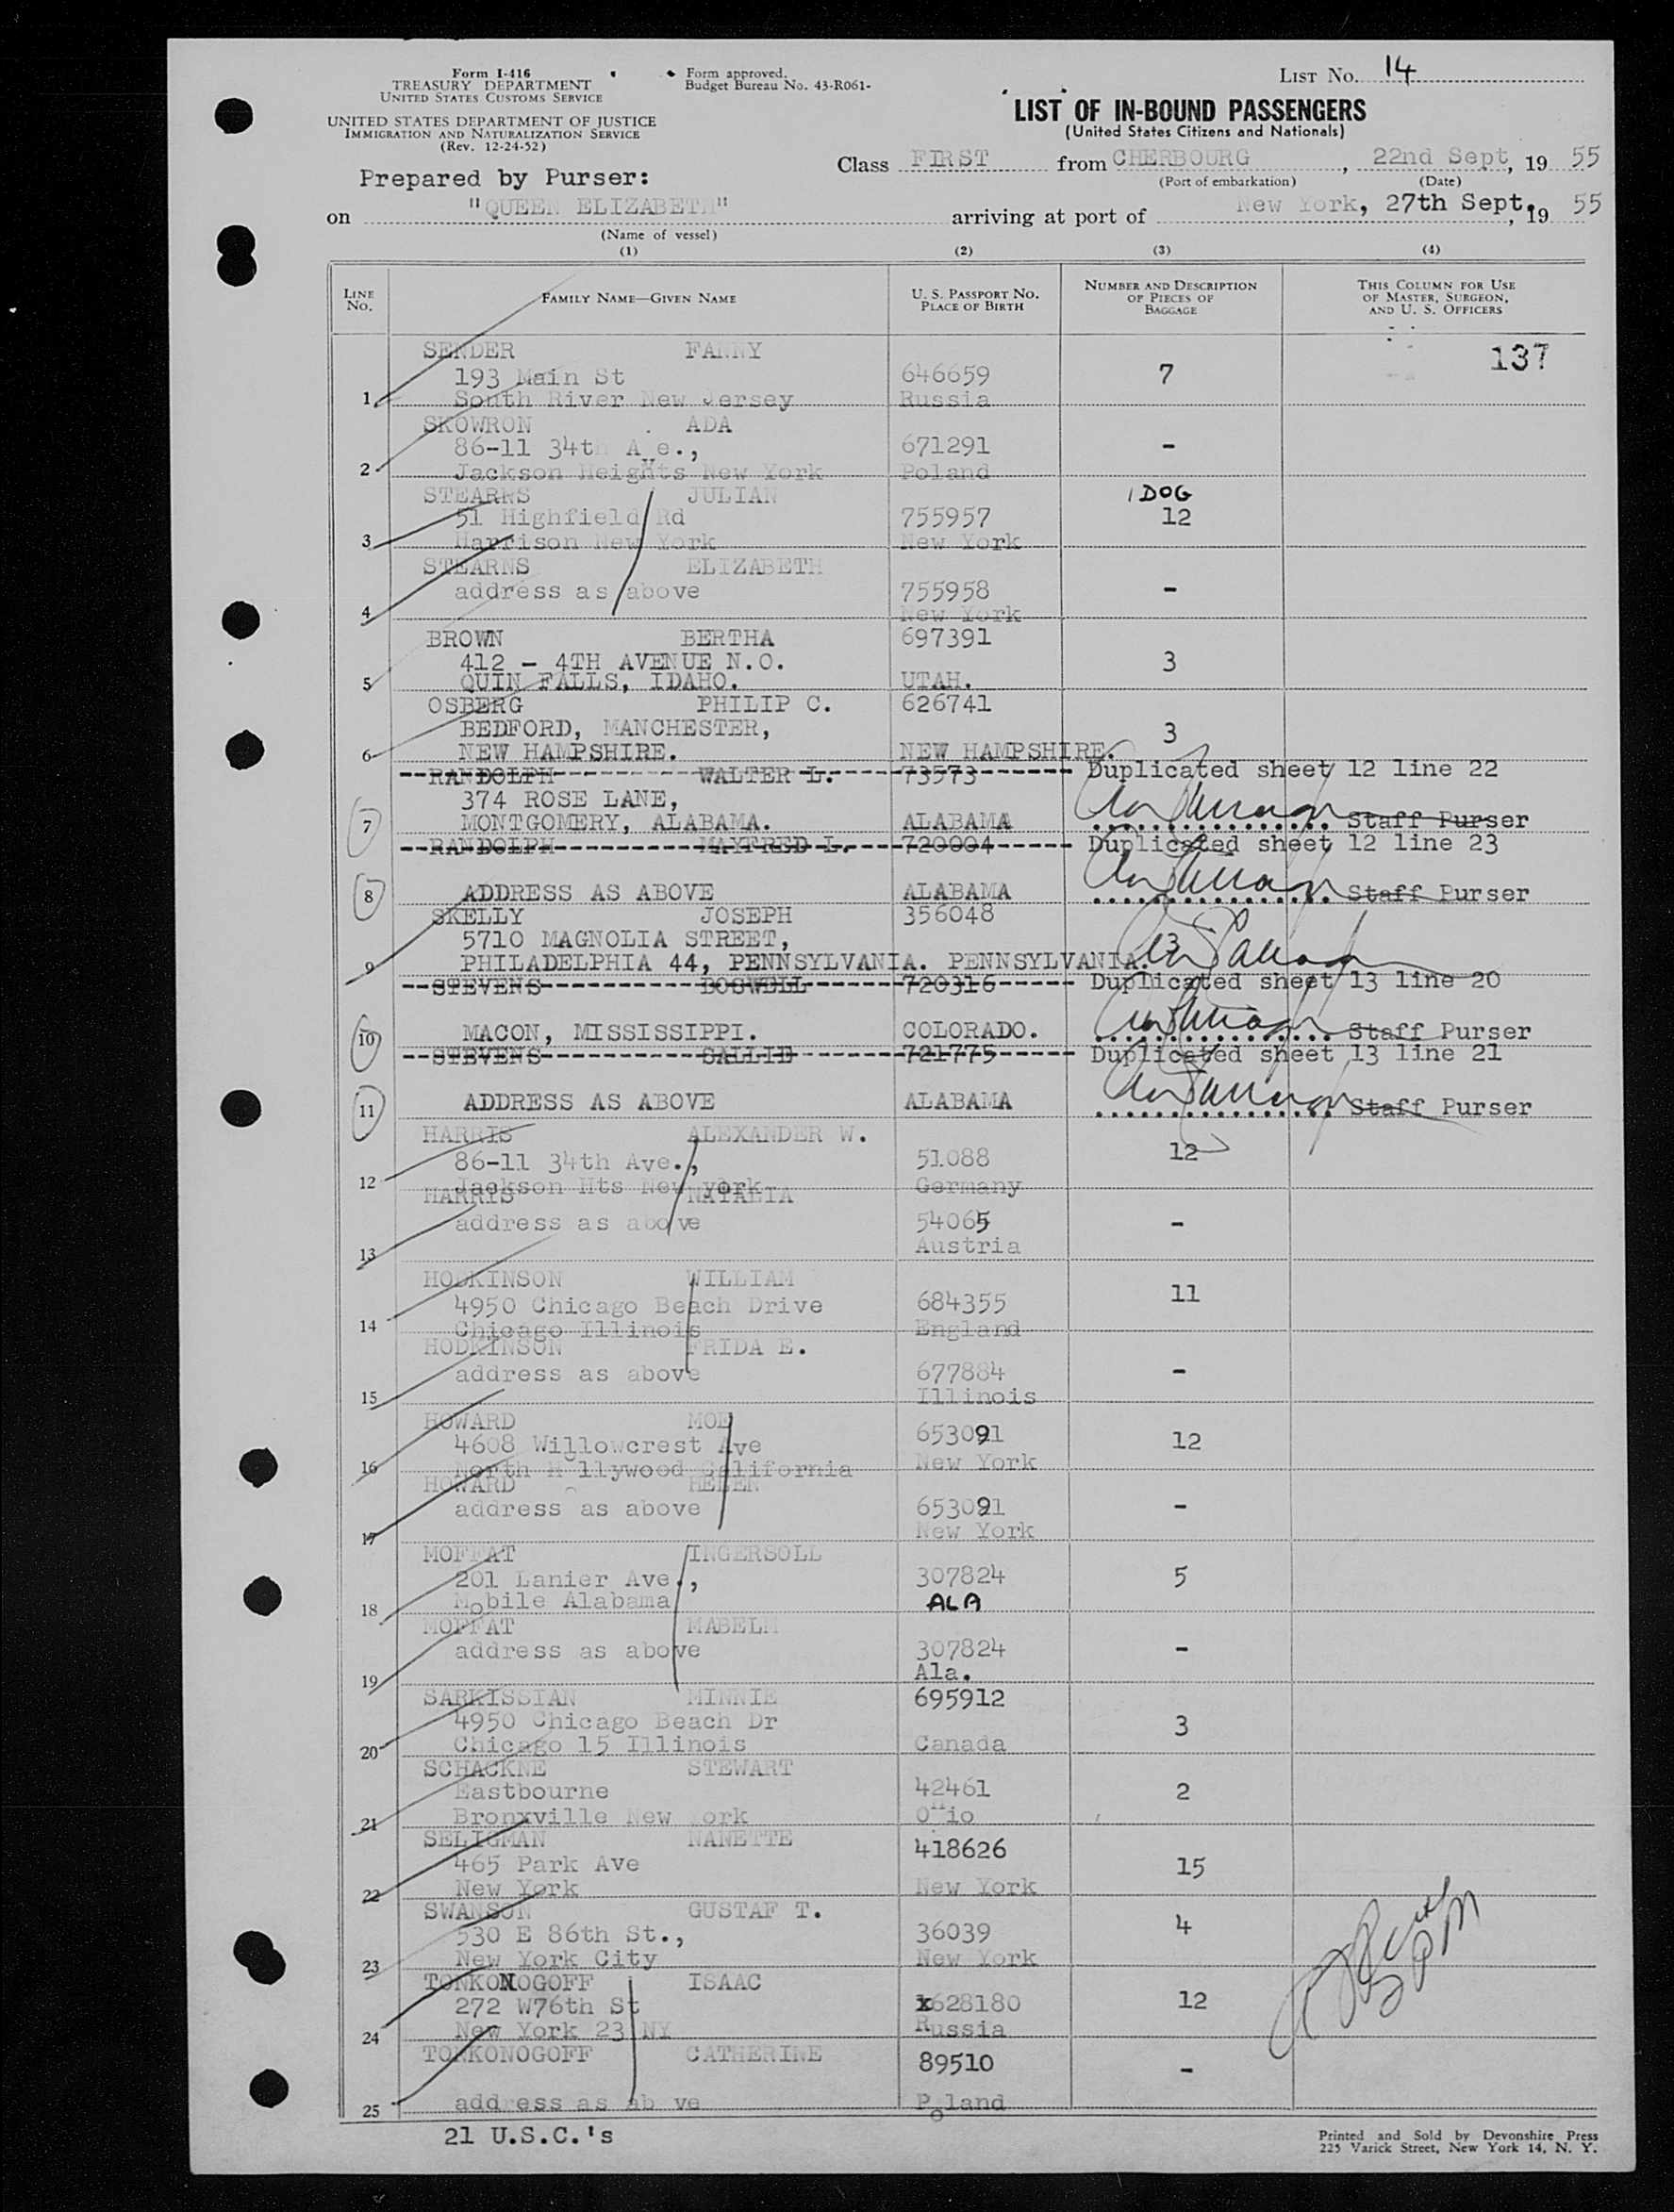 Form I-416
TREASURY DEPARTMENT
UNITED STATES CUSTOMS SERVICE
Form approved.
Budget Bureau No. 43-R061-
LIST NO. 14
UNITED STATES DEPARTMENT OF JUSTICE
IMMIGRATION AND NATURALIZATION SERVICE
(Rev. 12-24-52)
LIST OF IN-BOUND PASSENGERS
(United States Citizens and Nationals)
Class FIRST from CHERBOURG, 22nd Sept, 19 55
(Port of embarkation) (Date)
Prepared by Purser:
on "QUEEN ELIZABETH" arriving at port of New York, 27th Sept. 19 55
(Name of vessel)
(1) (2) (3) (4)
LINE NO. FAMILY NAME—GIVEN NAME U. S. PASSPORT NO. PLACE OF BIRTH NUMBER AND DESCRIPTION OF PIECES OF BAGGAGE THIS COLUMN FOR USE OF MASTER, SURGEON, AND U. S. OFFICERS
137
SENDER FANNY
193 Main St 646659 7
1 South River New Jersey Russia
SKOWRON ADA
86-11 34th Ave., 671291 -
2 Jackson Heights New York Poland
STEARNS JULIAN 1 DOG
51 Highfield Rd 755957 12
3 Harrison New York New York
STEARNS ELIZABETH
address as above 755958 -
4 New York
BROWN BERTHA 697391
412 - 4TH AVENUE N.O. 3
5 QUIN FALLS, IDAHO. UTAH.
OSBERG PHILIP C. 626741
BEDFORD, MANCHESTER, 3
6 NEW HAMPSHIRE. NEW HAMPSHIRE.
--RANDOLPH----------WALTER L.----73573------ Duplicated sheet 12 line 22
374 ROSE LANE,
7 MONTGOMERY, ALABAMA. ALABAMA Staff Purser
--RANDOLPH----------MAYFRED L.----720004----- Duplicated sheet 12 line 23
8 ADDRESS AS ABOVE ALABAMA Staff Purser
SKELLY JOSEPH 356048
5710 MAGNOLIA STREET, 3
9 PHILADELPHIA 44, PENNSYLVANIA. PENNSYLVANIA.
--STEVENS-----------BOSWELL------720316----- Duplicated sheet 13 line 20
10 MACON, MISSISSIPPI. COLORADO. Staff Purser
--STEVENS-----------SALLIE-------721775----- Duplicated sheet 13 line 21
11 ADDRESS AS ABOVE ALABAMA Staff Purser
HARRIS ALEXANDER W.
86-11 34th Ave., 51088 12
12 Jackson Hts New york Germany
HARRIS NATALIA
address as above 54065 -
13 Austria
HODKINSON WILLIAM
4950 Chicago Beach Drive 684355 11
14 Chicago Illinois England
HODKINSON FRIDA E.
address as above 677884 -
15 Illinois
HOWARD MOE
4608 Willowcrest Ave 653091 12
16 North Hollywood California New York
HOWARD HELEN
address as above 653091 -
17 New York
MOFFAT INGERSOLL
201 Lanier Ave., 307824 5
18 Mobile Alabama ALA
MOFFAT MABELM
address as above 307824 -
19 Ala.
SARKISSIAN MINNIE 695912
4950 Chicago Beach Dr 3
20 Chicago 15 Illinois Canada
SCHACKNE STEWART
Eastbourne 42461 2
21 Bronxville New York Ohio
SELIGMAN NANETTE 418626
465 Park Ave 15
22 New York New York
SWANSON GUSTAF T.
530 E 86th St., 36039 4
23 New York City New York
TONKONOGOFF ISAAC
272 W76th St 628180 12
24 New York 23 NY Russia
TONKONOGOFF CATHERINE 89510
-
25 address as ab ve Poland
21 U.S.C.'s
Printed and Sold by Devonshire Press
225 Varick Street, New York 14, N. Y.